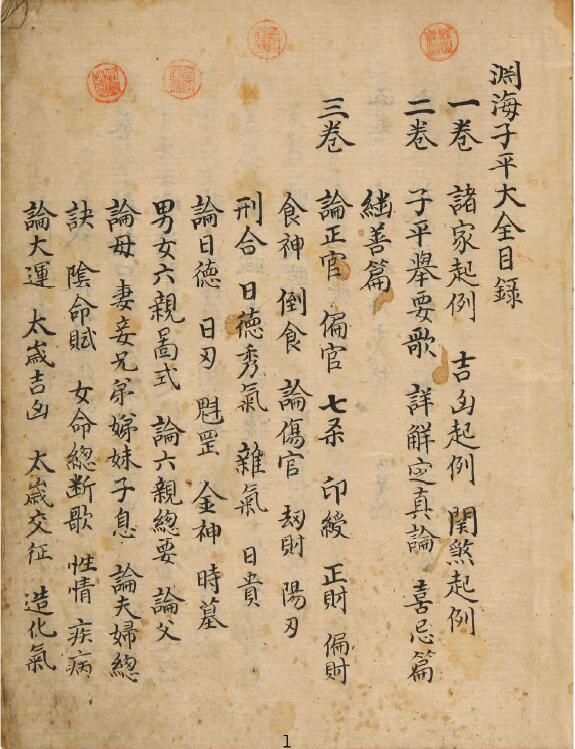 渕海子平大全目録
一卷 諸家起例 吉凶起例 関煞起例
二卷 子平舉要歌 詳解定真論 喜忌篇
継善篇
三卷 論正官 偏官 七杀 印綬 正財 偏財
食神 倒食 論傷官 刼財 陽刃
刑合 日德秀氣 雜氣 日貴
論日德 日刃 魁罡 金神 時墓
男女六親啚式 論六親總要 論父
論母 妻妾兄弟娣妹子息 論夫婦總
訣 陰命賦 女命總断歌 性情 疾病
論大運 太歲吉凶 太歲交征 造化氣
1